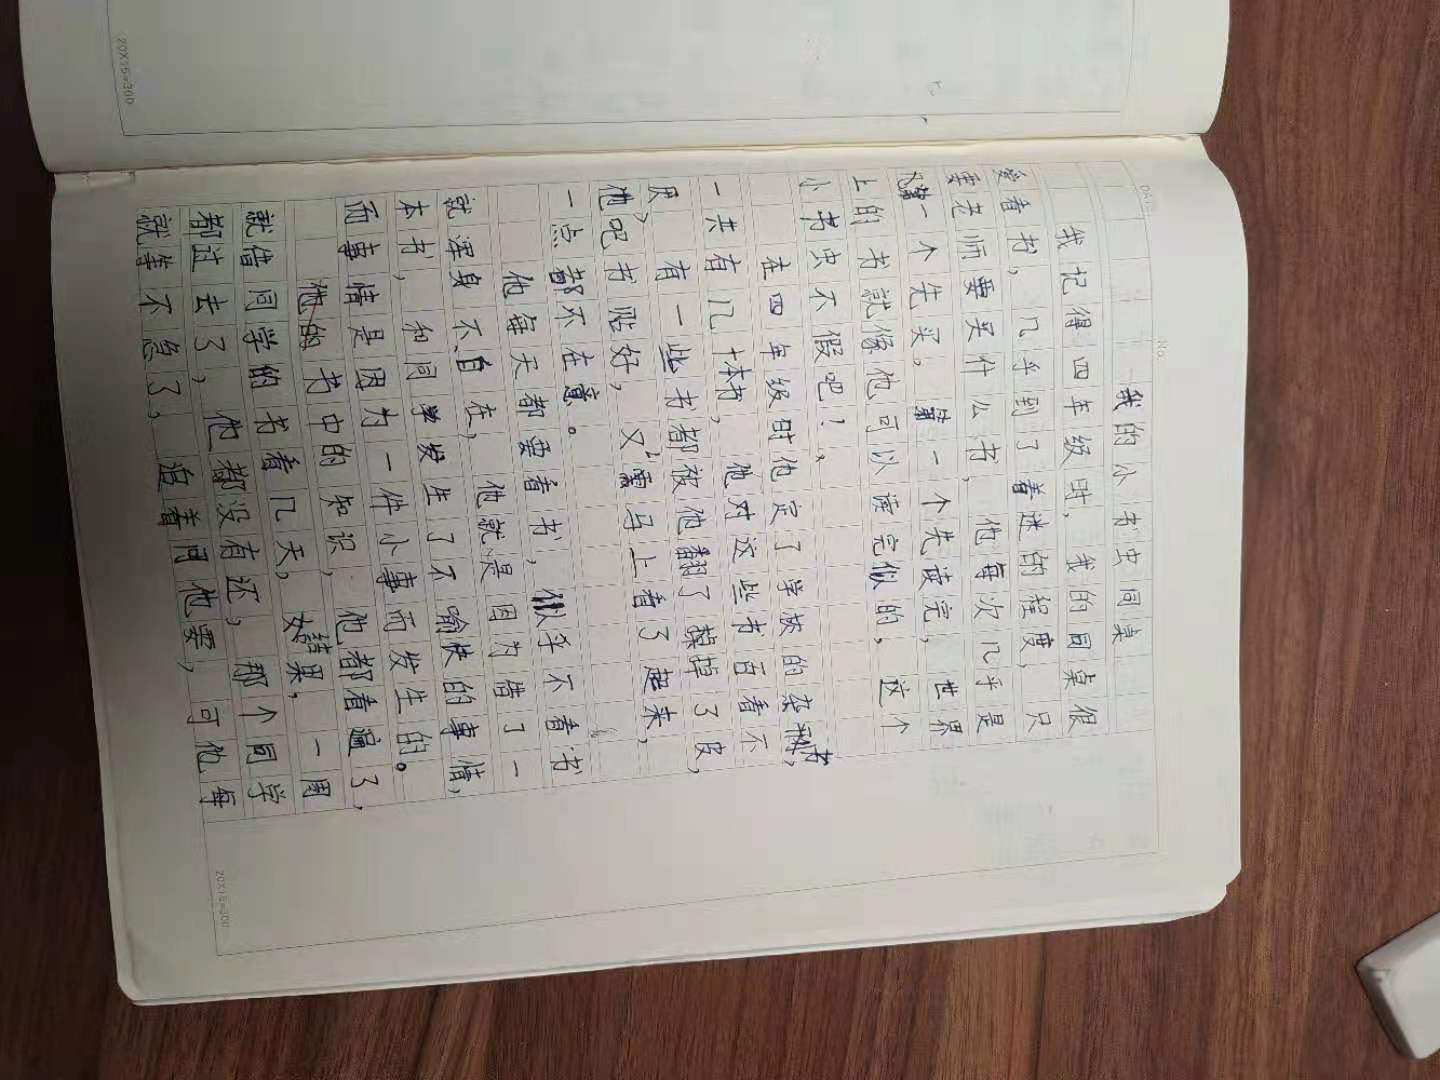 我的小书虫同桌
我记得四年级时，我的同桌很
爱看书，几乎到了着迷的程度，只
要老师要买什么书，他每次几乎是
第一个先买。第一个先读完，世界
上的书就像他可以读完似的，这个
小书虫不假吧！，
在四年级时他定了学校的杂书，
一共有几十本书，他对这些书百看不
厌，有一些书都被他翻了掉了皮，
他吧书贴好，又马上看了起来，
一点都不在意。
他每天都要看书，似乎不看书
就浑身不自在，他就是因为借了一
本书，和同学发生了不愉快的事情，
而事情是因为一件小事而发生的。
他的书中的知识，他都看遍了，
就借同学的书看几天，结果，一周
都过去了，他都没有还，那个同学
就等不急了，追着问他要，可他每
20X15=300
20X15=300
No.